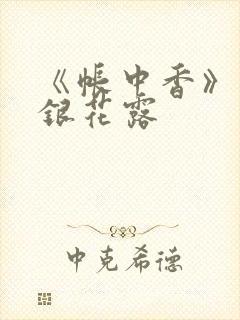 《帐中香》
银花露
中克希德